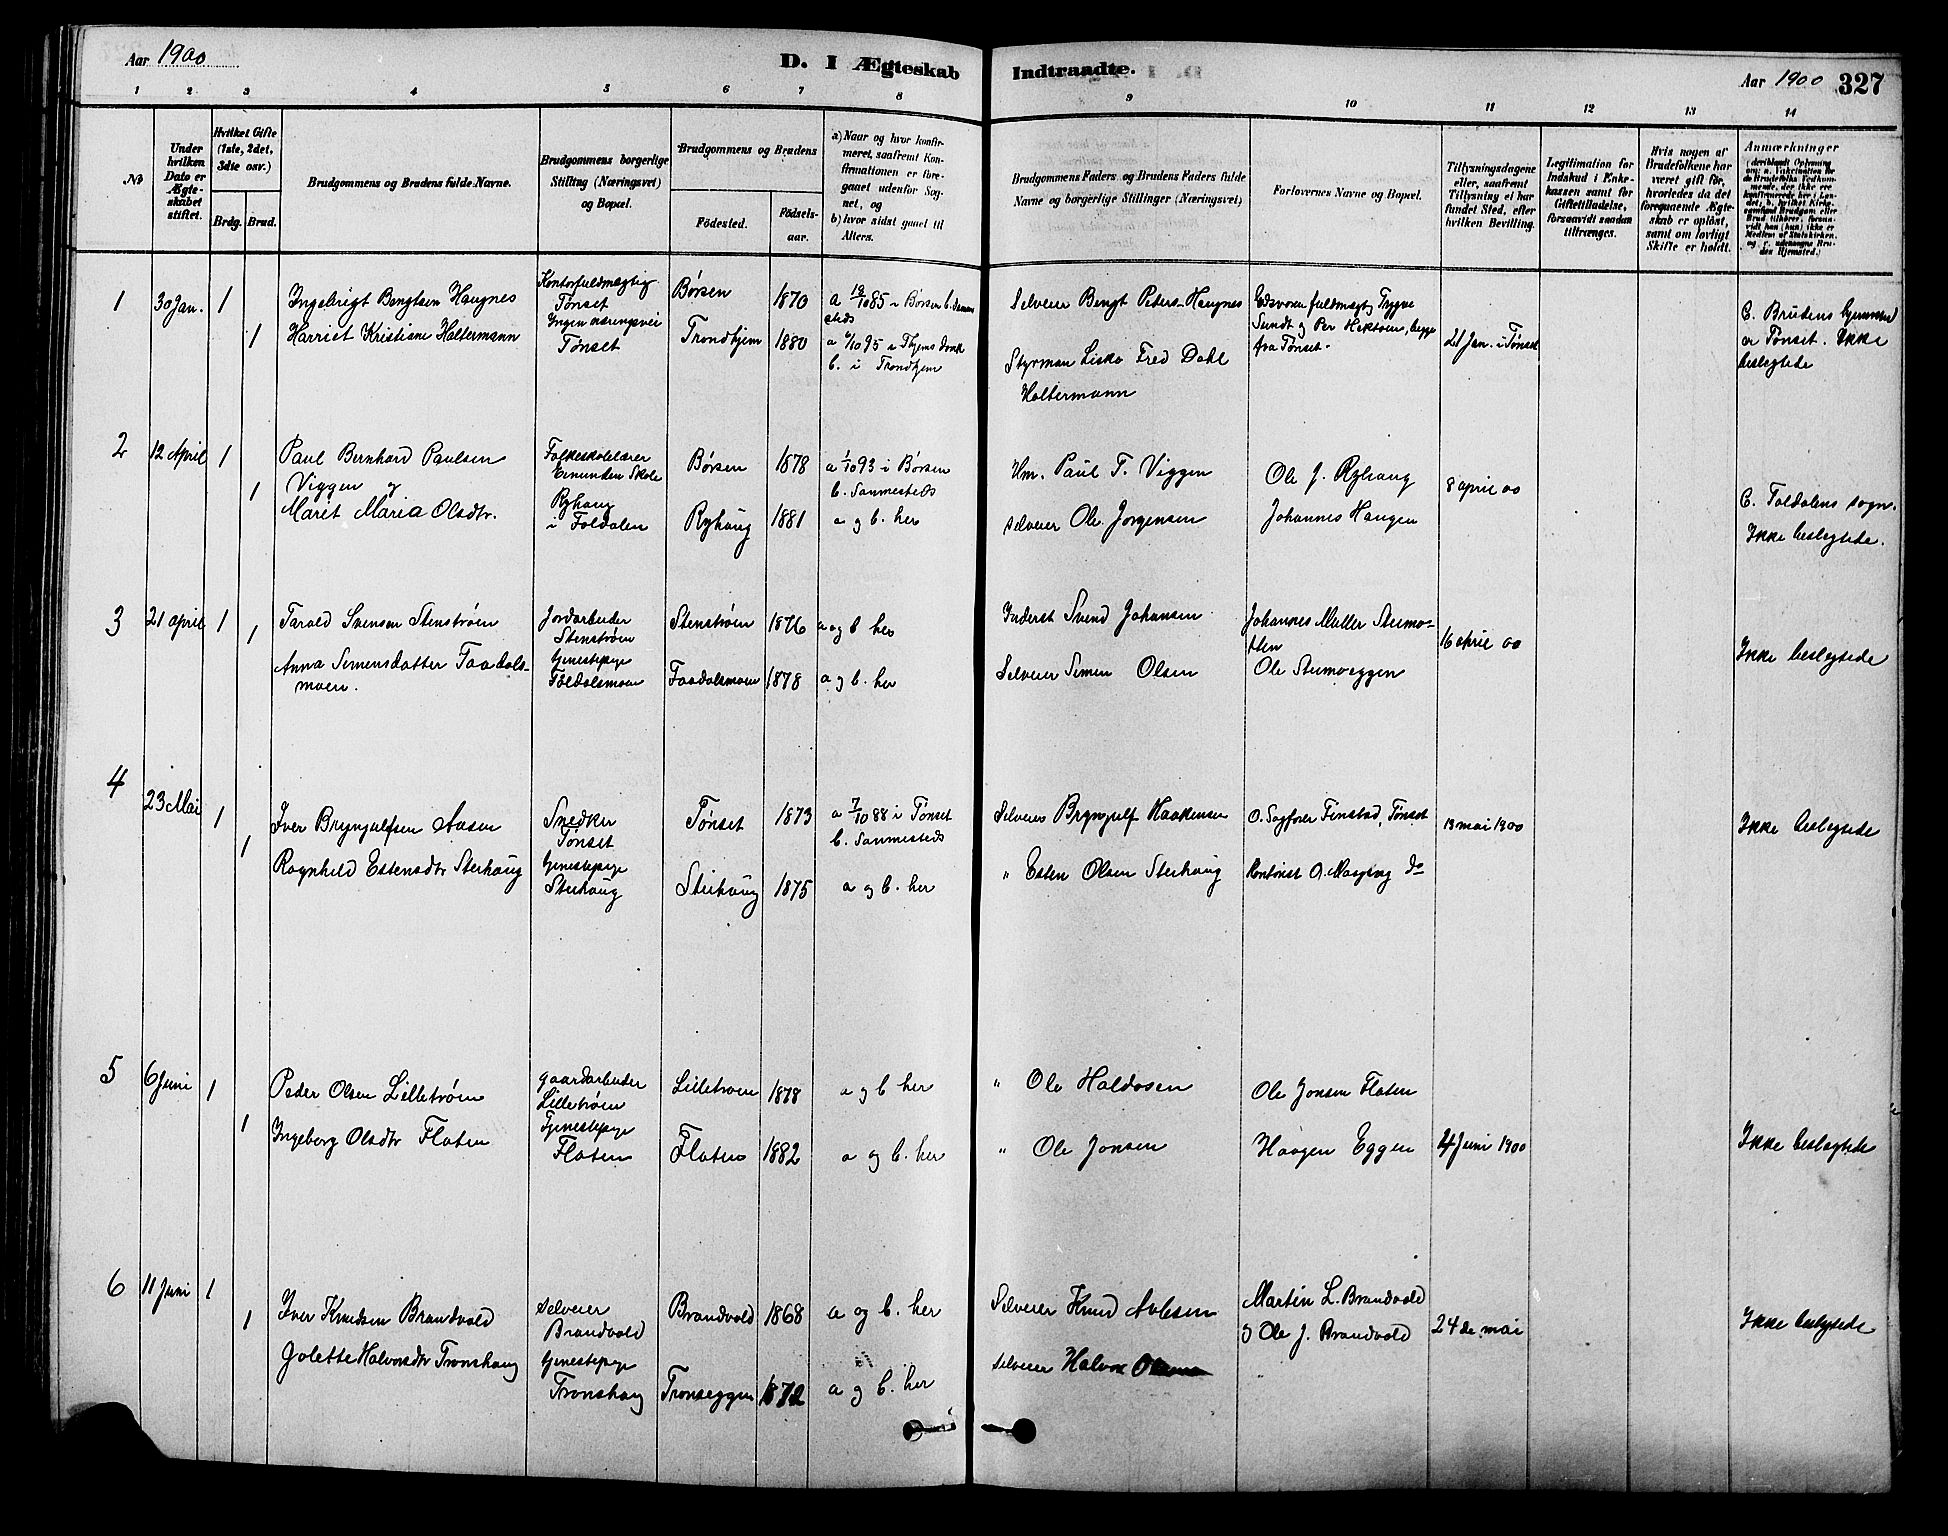 Aar 1900
D. I Ægteskab
Indtraadte.
Aar 1900 327
1 2 3 4 5 6 7 8 9 10 11 12 13 14
No
Under hvilken Dato er Ægteskabet stiftet.
Hvilket Gifte (1ste, 2det, 3die osv.)
Brdg. Brud.
Brudgommens og Brudens fulde Navne.
Brudgommens borgerlige Stilling (Næringsvei) og Bopæl.
Brudgommens og Brudens
Födested.
Födselsaar.
a) Naar og hvor konfirmeret, saafremt Konfirmationen er foregaaet udenfor Sognet, og
b) hvor sidst gaaet til Alters.
Brudgommens Faders og Brudens Faders fulde Navne og borgerlige Stillinger (Næringsvei)
Forlovernes Navne og Bopæl.
Tillysningsdagene eller, saafremt Tillysning ei har fundet Sted, efter hvilken Bevilling.
Legitimation for Indskud i Enkekassen samt for Giftetilladelse, forsaavidt saadan tiltrænges.
Hvis nogen af Brudefolkene har været gift för, hvorledes da det foregaaende Ægteskab er oplöst, samt om lovligt Skifte er holdt.
Anmærkninger
1 30 Jan. 1
Ingebrigt Bengtsen Haugnes
Kontorfuldmægtig
Tønset
Børsen 1870
a 1885 i Børsen b. sammesteds
Selveier Bengt Peters. Haugnes
Edsvoren fuldmægt Trygve Sundt og Per Hektoen, begge fra Tønset.
21 Jan. i Tønset
C. Brudens hjemsted er Tønset. Ikke beslegtede
1
Harriet Kristiane Haltermann
Ingen næringsvei
Tønset
Trondhjem 1880
a /10 95 i Thjems domk
b. i Trondhjem
Styrman Fred Dahl
Holtermann
2 12 April 1
Paul Bernhard Paulsen
Viggen og
Folkeskolelærer
Børsen 1878
a 1/10 93 i Børsen
b. Sammesteds
Hm. Paul T. Viggen
Ole J. Ryhaug
8 april 00
1
Maret Maria Olsdtr.
Ryhaug
i Foldalen
Ryhaug 1881
a og b. her
selveier Ole Jorgensen
Johannes Haugen
C. Foldalens sogn.
Ikke beslegtede.
3 21 april 1
Tarald Svensen Stenstrøen
Jordarbeider
Stenstrøen
Stenstrøen 1876
a og b her
Inderst Svend Johansen
Johannes Møller Stumotten
16 april 00
1
Anna Simensdatter Faadalsmoen.
tjenestepige
Foldalsmoen
Faadalsmoen 1878
a og b. her
Selveier Simen Olsen
Ole Stumoeggen
Ikke beslegtede
4 23 Mai 1
Iver Brynjulfsen Aasen
Snedker
Tønset
Tønset 1873
a 7/10 88 i Tønset
b. Sammesteds
Selveier Brynjulf Haakensen
O. Sagfører Finstad, Tønset
13 mai 1900
Ikke beslegtede
1
Ragnhild Estensdtr Sterhaug
tjenestepige
Sterhaug
Sterhaug 1875
a og b. her
" Esten Olsen Sterhaug
Kontorist
do
5 6 Juni 1
Peder Olsen Lillestrøen
gaardarbeider
Lillestrøen
Lillestroen 1878
a og b her
" Ole Haldosen
Ole Jonsen Floten
1
Ingeborg Olsdtr Floten
Tjenestepige
Floten
Floten 1882
a og b. her
" Ole Jonsen
Haagen Eggen
4 Juni 1900
Ikke beslegtede
6 11 Juni 1
Iver Knudsen Brandvold
selveier
Brandvold
Brandvold 1868
a og b. her
Selveier Knud
Martin L. Brandvold
og Ole J. Brandvold
24de mai
Ikke beslegtede
1
Golette Halvorsdtr Tronshaug
tjenestepige
Tronshaug
Tronseggen 1872
a og b. her
selveier Halvor Olsen